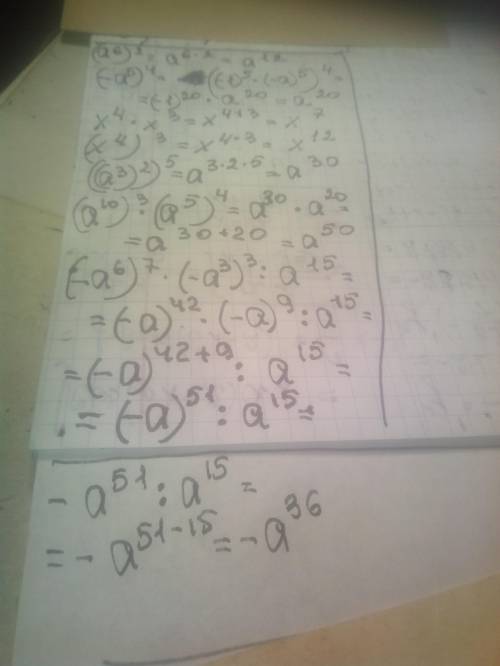 (a⁶)² = a⁶·² = a¹²
(-a⁵)⁴ = ((-1)⁵·(-a)⁵)⁴ =
= (-1)²⁰ · a²⁰ = a²⁰
x⁴ · x³ = x⁴⁺³ = x⁷
(x⁴)³ = x⁴·³ = x¹²
((a³)²)⁵ = a³·²·⁵ = a³⁰
(a¹⁰)³·(a⁵)⁴ = a³⁰ · a²⁰ =
= a³⁰⁺²⁰ = a⁵⁰
(-a⁶)⁷ · (-a³)³ : a¹⁵ =
= (-a)⁴² · (-a)⁹ : a¹⁵ =
= (-a)⁴²⁺⁹ : a¹⁵ =
= (-a)⁵¹ : a¹⁵ =
- a⁵¹ : a¹⁵ =
= - a⁵¹⁻¹⁵ = - a³⁶